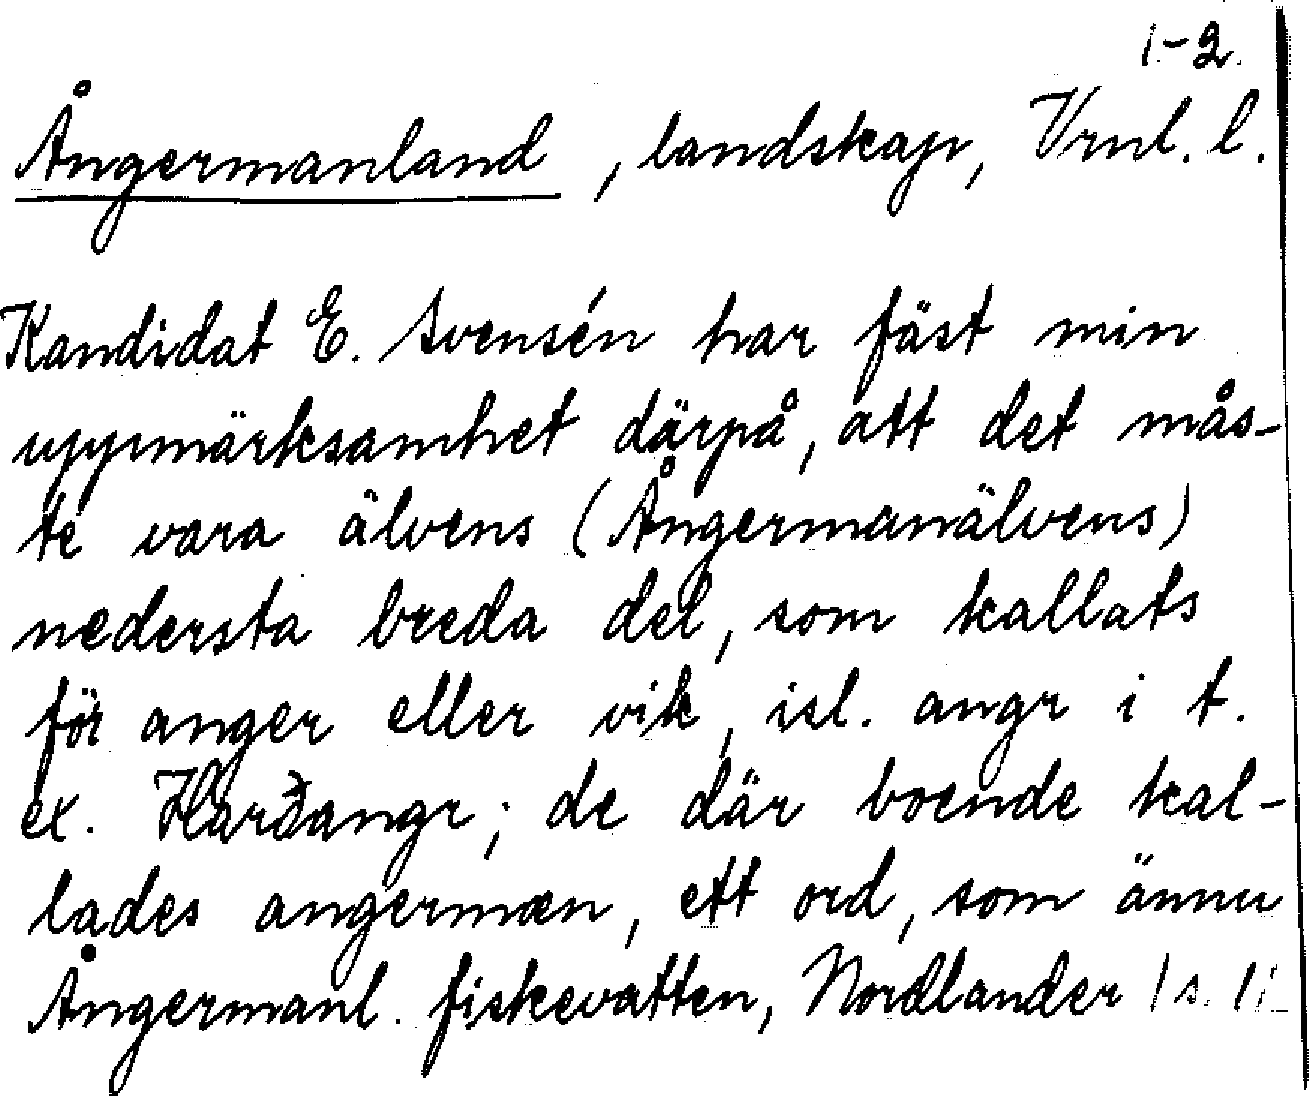 1-2.
Ångermanland, landskap, Vrnl. l.
Kandidat E. Svensén har fäst min
uppmärksamhet därpå, att det mås-
te vara älvens (Ångermanälvens)
nedersta breda del, som kallats
för anger eller vik, isl. angr i t.
ex. Harðangr; de där boende kal-
lades angermæn, ett ord, som ännu
Ångermanl. fiskevatten, Nordlander 1 s. 11